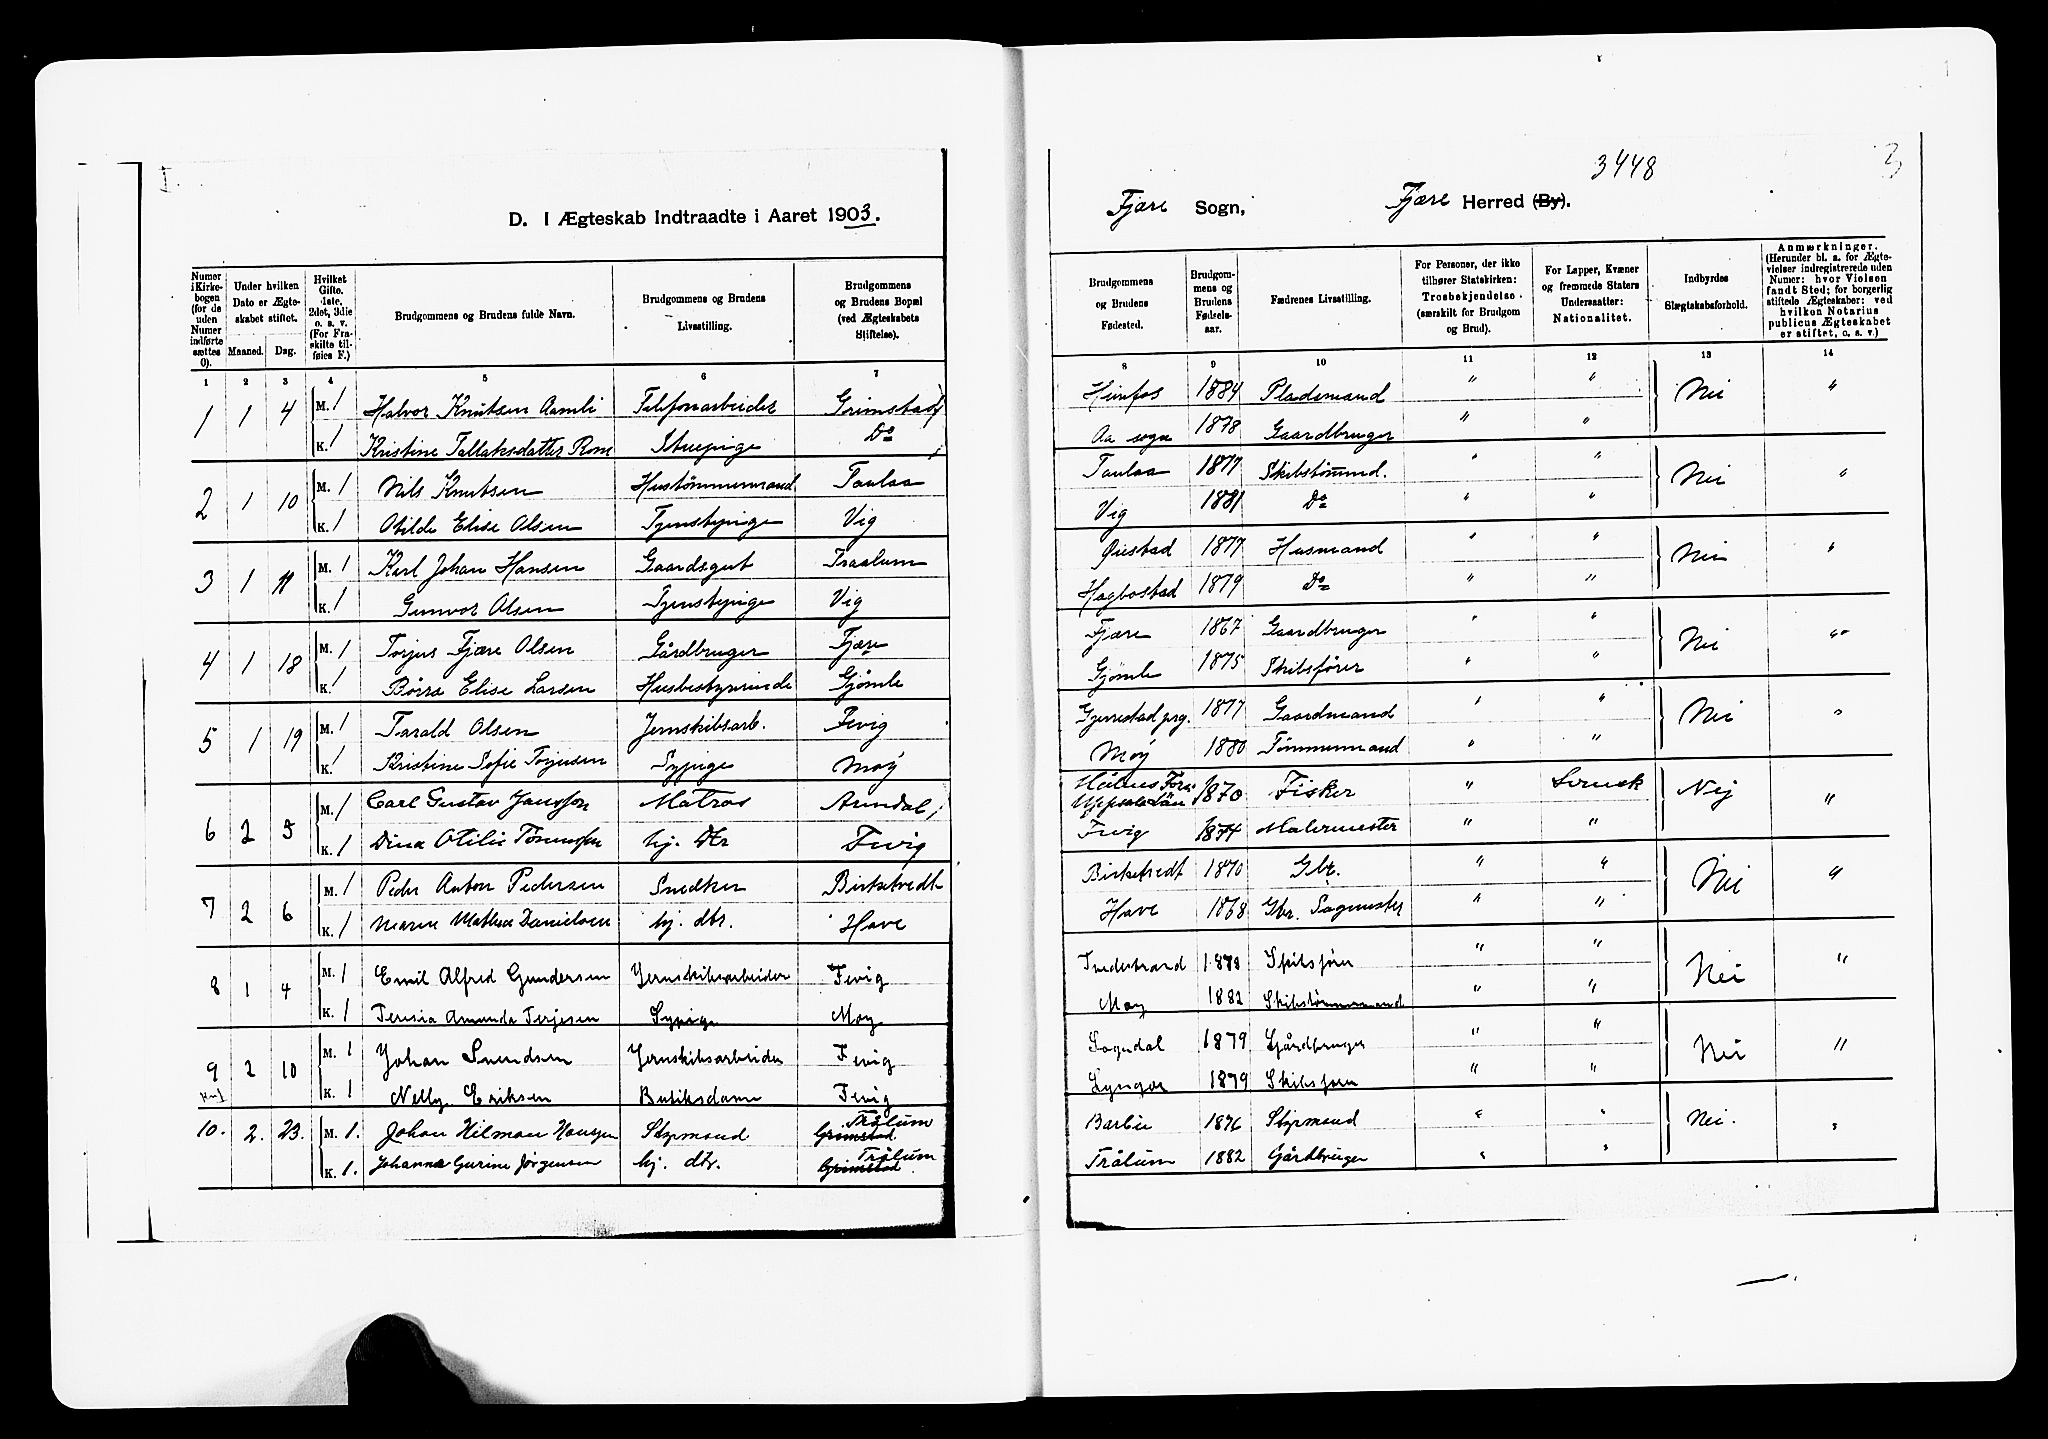 I.
D. I Ægteskab Indtraadte i Aaret 1903.
Numer i Kirkebogen (for de uden Numer indførte sættes 0).
Under hvilken Dato er Ægteskabet stiftet.
Maaned. Dag.
Hvilket Gifte. 1ste, 2det, 3die o. s. v. (For Fraskilte tilføies F.)
Brudgommens og Brudens fulde Navn.
Brudgommens og Brudens Livsstilling.
Brudgommens og Brudens Bopæl (ved Ægteskabets Stiftelse).
1 2 3 4 5 6 7
1 1 4 M. 1 Halvor Knutsen Aamli Telefonarbeider Grimstad
K. 1 Kristine Tallaksdatter Rom Stuepige Do
2 1 10 M. 1 Nils Knutsen Hustømmermand Taulaa
K. 1 Otilde Elise Olsen Tjenstepige Vig
3 1 11 M. 1 Karl Johan Hansen Gaardsgut Traalum
K. 1 Gunvor Olsen Tjenstepige Vig
4 1 18 M. 1 Torjus Fjære Olsen Gårdbruger Fjære
K. 1 Børra Elise Larsen Husbestyrerinde Gjømle
5 1 19 M. 1 Tarald Olsen Jernskibsarb. Fevig
K. 1 Kristine Sofie Torjusen Sypige Moy
6 2 5 M. 1 Carl Gustav Jansson Matros Arendal
K. 1 Dina Otilie Tønnessen hj. Dtr Fevig
7 2 6 M. 1 Peder Anton Pedersen Snedker Birketvedt
K. 1 Maren Mathea Danielsen hj. dtr. Have
8 1 4 M. 1 Emil Alfred Gundersen Jernskibsarbeider Fevig
K. 1 Teresia Amunda Terjesen Sypige Moy
9 2 10 M. 1 Johan Svendsen Jernskibsarbeider Fevig
K. 1 Nelly Eriksen Butiksdame Fevig
10. 2. 23. M. 1. Johan Hilman Hansen Styrmand Trålum Grimstad
K. 1. Johanne Gurine Jørgensen hj. dtr. Trålum Grimstad
3448 3
Fjære Sogn, Fjære Herred (By).
Brudgommens og Brudens Fødested.
Brudgommens og Brudens Fødselsaar.
Fædrenes Livsstilling.
For Personer, der ikke tilhører Statskirken: Trosbekjendelse. (særskilt for Brudgom og Brud).
For Lapper, Kvæner og fremmede Staters Undersaatter: Nationalitet.
Indbyrdes Slægtskabsforhold.
Anmærkninger. (Herunder bl. a. for Ægtevielser indregistrerede uden Numer: hvor Vielsen fandt Sted; for borgerlig stiftede Ægteskaber: ved hvilken Notarius publicus Ægteskabet er stiftet, o. s. v.)
8 9 10 11 12 13 14
1884 Pladsmand " " Nei "
Aa sogn 1878 Gaardbruger " "
Taulaa 1877 Skibstømmd. " " Nei "
Vig 1881 Do " "
Øiestad 1877 Husmand " " Nei "
Hægbostad 1879 Do " "
Fjære 1867 Gaardbruger " " Nei "
Gjømle 1875 Skibsfører " "
Gjerrestad prg. 1877 Gaardmand " " Nei "
Moy 1880 Tømmermand " "
Uppsala Län 1870 Fisker " Svensk Nej "
Fevig 1874 Malermester " "
Birketvedt 1870 Gbr. " " Nei "
Have 1868 Gbr. Sagmester " "
Tvedestrand 1878 Skibsfører " " Nei "
Moy 1882 Skibstømmermand " "
Sogndal 1879 Gårdbruger " " Nei "
Lyngør 1879 Skibsfører " "
Barbu 1876 Styrmand " " Nei. "
Trålum 1882 Gårdbruger " "